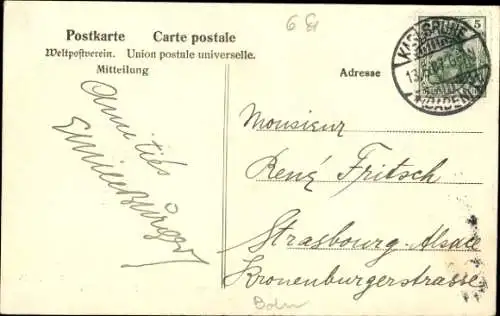 6
Postkarte Carte postale
Weltpostverein. Union postale universelle.
Mitteilung
Adresse
KARLSRUHE
(BADEN)
5
Amitiés
Monsieur
René Fritsch
Strasbourg-Alsace
Kronenburgerstrasse